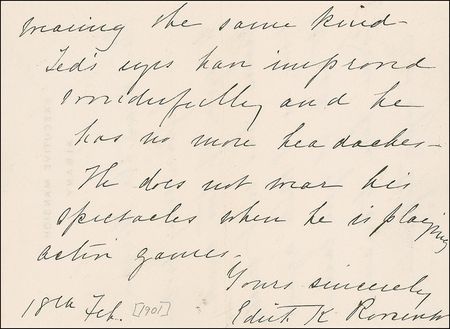 wearing the same kind -
Ted's eyes have improved
wonderfully and he
has no more headaches -
He does not wear his
spectacles when he is playing
active games -
Yours sincerely
18th Feb. [1901] Edith K Roosevelt
EXECUTIVE MANSION
ALBANY